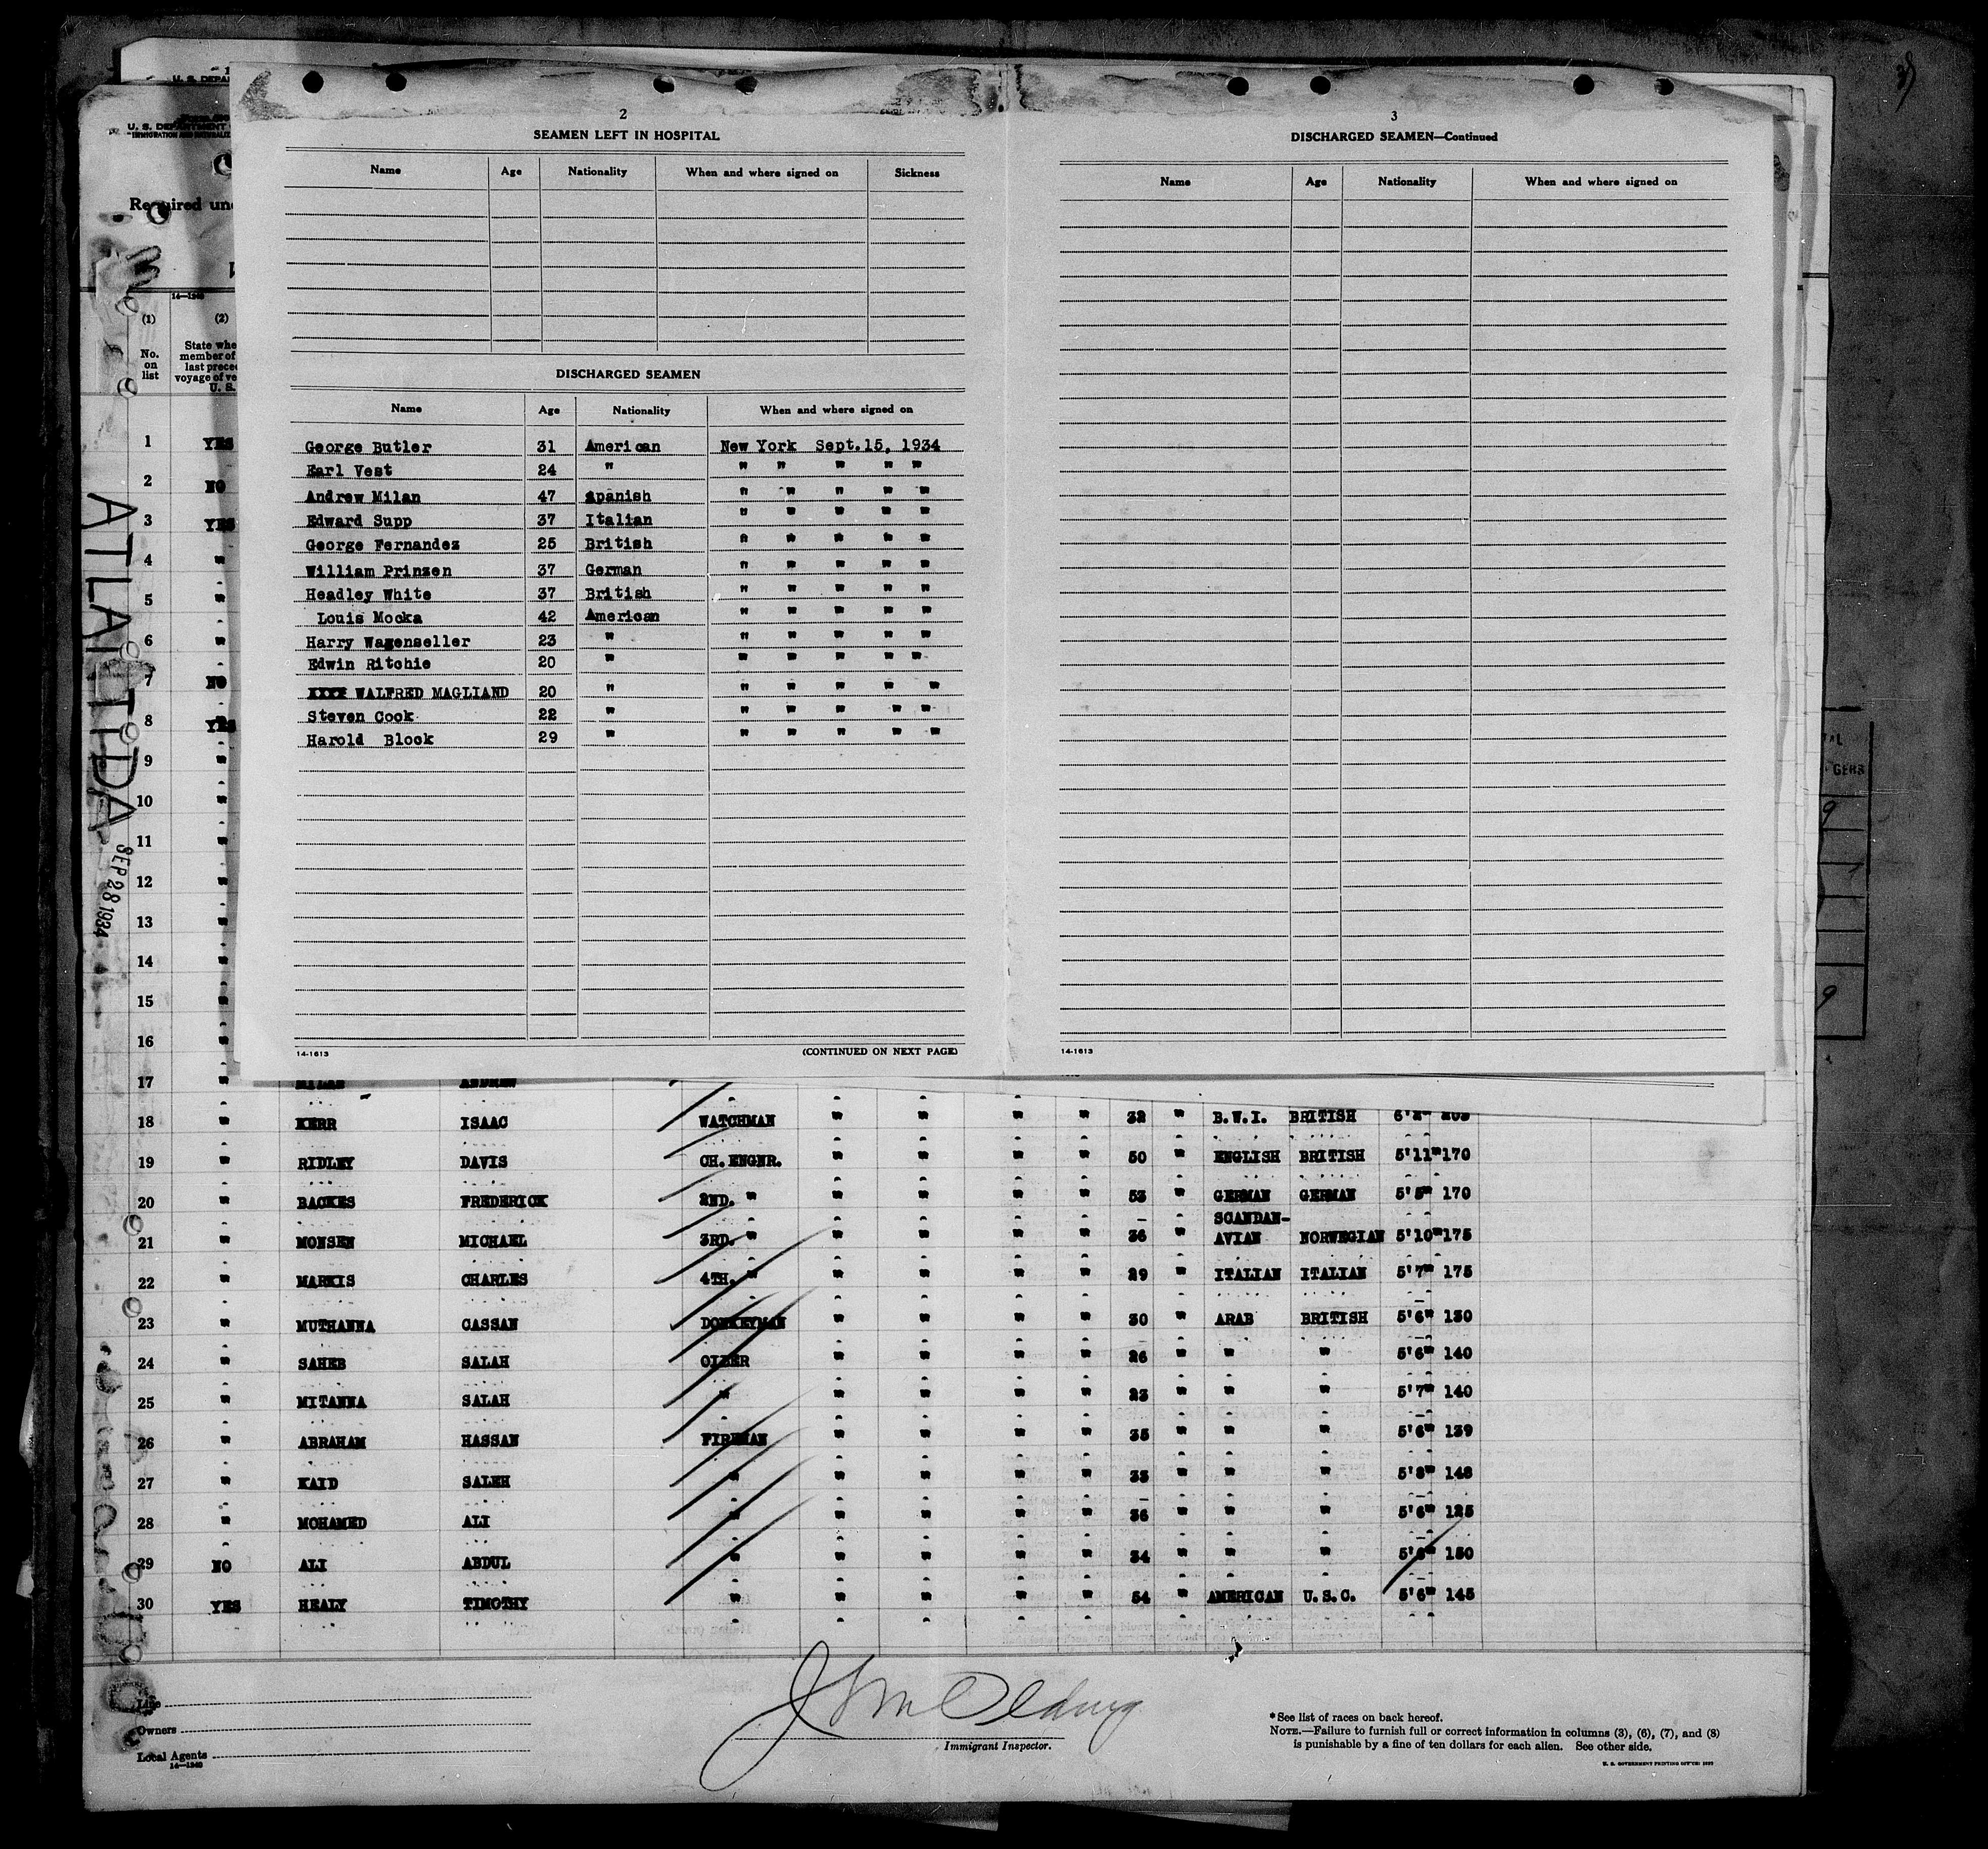 2
SEAMEN LEFT IN HOSPITAL
Name Age Nationality When and where signed on Sickness
DISCHARGED SEAMEN
Name Age Nationality When and where signed on
George Butler 31 American New York Sept.15, 1934
Earl Vest 24 " " " " " "
Andrew Milan 47 Spanish " " " " "
Edward Supp 37 Italian " " " " "
George Fernandez 25 British " " " " "
William Prinzen 37 German " " " " "
Headley White 37 British " " " " "
Louis Mocka 42 American " " " " "
Harry Wagenseller 23 " " " " " "
Edwin Ritchie 20 " " " " " "
WALFRED MAGLIAND 20 " " " " " "
Steven Cook 22 " " " " " "
Harold Block 29 " " " " " "
14-1613 (CONTINUED ON NEXT PAGE)
3
DISCHARGED SEAMEN—Continued
Name Age Nationality When and where signed on
14-1613
U. S. DEPA
U. S. DEPARTMENT
Required und
14—1240
(1) (2)
No. on list
State whe
member of
last prece
voyage of ve
U. S.
ATLANTIDA
SEP 28 1934
1 YES
2 NO
3 YES
4 "
5 "
6 "
7 NO
8 YES
9 "
10 "
11 "
12 "
13 "
14 "
15 "
16 "
17 " MILAN ANDREW
18 " KERR ISAAC WATCHMAN " " " " 32 " B.W.I. BRITISH 6'2" 205
19 " RIDLEY DAVIS CH.ENGNR. " " " " 50 " ENGLISH BRITISH 5'11" 170
20 " BACKES FREDERICK 2ND. " " " " " 53 " GERMAN GERMAN 5'5" 170
21 " MONSEN MICHAEL 3RD. " " " " " 36 " SCANDAN-AVIAN NORWEGIAN 5'10" 175
22 " MARKIS CHARLES 4TH. " " " " " 29 " ITALIAN ITALIAN 5'7" 175
23 " MUTHANNA CASSAN DONKEYMAN " " " " 30 " ARAB BRITISH 5'6" 130
24 " SAHEB SALAH OILER " " " " 26 " " " 5'6" 140
25 " MITANNA SALAH " " " " " 23 " " " 5'7" 140
26 " ABRAHAM HASSAN FIREMAN " " " " 35 " " " 5'6" 139
27 " KAID SALEH " " " " " 33 " " " 5'8" 148
28 " MOHAMED ALI " " " " " 36 " " " 5'6" 125
29 NO ALI ABDUL " " " " " 34 " " " 5'6" 150
30 YES HEALY TIMOTHY " " " " " 54 " AMERICAN U.S.C. 5'6" 145
Line
Owners
Local Agents
14—1240
Immigrant Inspector.
*See list of races on back hereof.
NOTE.—Failure to furnish full or correct information in columns (3), (6), (7), and (8)
is punishable by a fine of ten dollars for each alien. See other side.
U. S. GOVERNMENT PRINTING OFFICE: